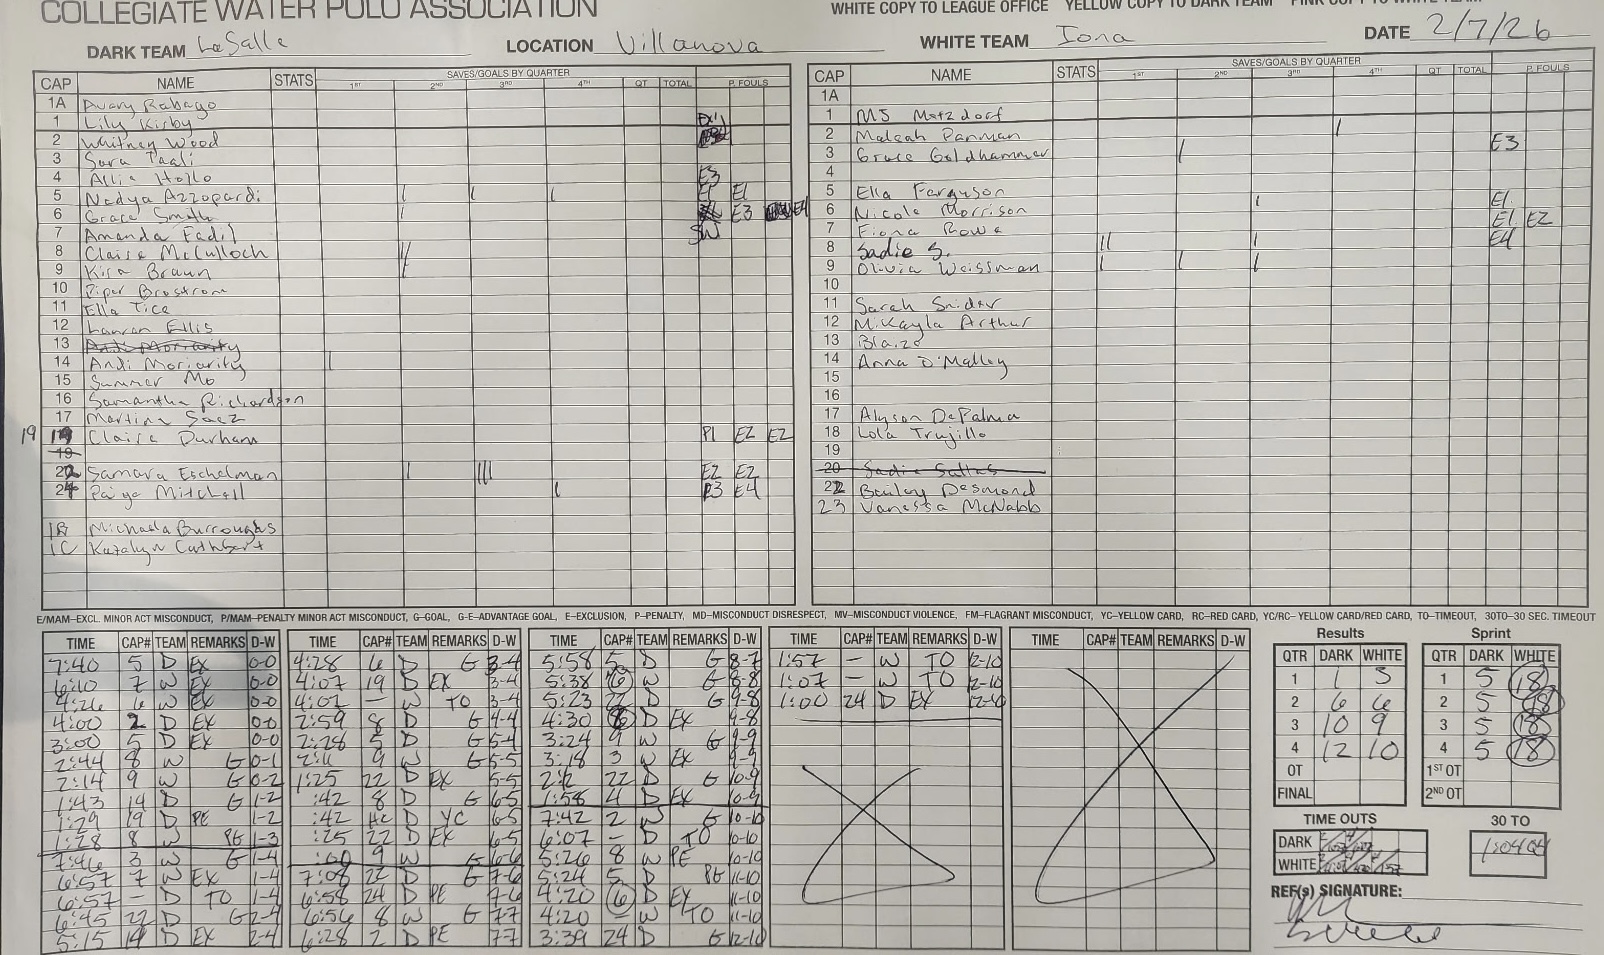 COLLEGIATE WATER POLO ASSOCIATION
WHITE COPY TO LEAGUE OFFICE YELLOW COPY TO DARK TEAM
DARK TEAM LaSalle LOCATION Villanova WHITE TEAM Iona DATE 2/7/26
CAP NAME STATS SAVES/GOALS BY QUARTER P. FOULS
1ST 2ND 3RD 4TH QT TOTAL
1A Avary Rabago
1 Lily Kirby
2 Whitney Wood
3 Sara Taali
4 Allie Hollo E3
5 Nadya Azzopardi E1 E1
6 Grace Smith E3 E4
7 Amanda Fadil SW
8 Claire McCulloch
9 Kira Braun
10 Piper Brostrom
11 Ella Tice
12 Lauren Ellis
13 Andi Moriarity
14 Andi Moriarity
15 Summer Mo
16 Samantha Richardson
17 Martina Saez
19 Claire Durham P1 E2 E2
19
22 Samara Eschelman E2 E2
24 Paige Mitchell P3 E4
1B Michaela Burroughs
1C Katalyn Cuthbert
CAP NAME STATS SAVES/GOALS BY QUARTER P. FOULS
1ST 2ND 3RD 4TH QT TOTAL
1A
1 MJ Metzdorf
2 Maleah Panman
3 Grace Goldhammer E3
4
5 Ella Ferguson
6 Nicole Morrison E1
7 Fiona Rowe E1 E2
8 Sadie S. E4
9 Olivia Weissman
10
11 Sarah Snider
12 Mikayla Arthur
13 Blaize
14 Anna O'Malley
15
16
17 Alyson DePalma
18 Lola Trujillo
19
20 Sadie
22 Bailey Desmond
23 Vanessa McNabb
E/MAM–EXCL. MINOR ACT MISCONDUCT, P/MAM–PENALTY MINOR ACT MISCONDUCT, G–GOAL, G-E–ADVANTAGE GOAL, E–EXCLUSION, P–PENALTY, MD–MISCONDUCT DISRESPECT, MV–MISCONDUCT VIOLENCE, FM–FLAGRANT MISCONDUCT, YC–YELLOW CARD, RC–RED CARD, YC/RC–YELLOW CARD/RED CARD, TO–TIMEOUT, 30TO–30 SEC. TIMEOUT
TIME CAP# TEAM REMARKS D-W
7:40 5 D EX 0-0
6:10 7 W EX 0-0
4:26 6 W EX 0-0
4:00 2 D EX 0-0
3:00 5 D EX 0-0
2:44 8 W G 0-1
2:14 9 W G 0-2
1:43 14 D G 1-2
1:29 19 D PE 1-2
1:28 8 W PG 1-3
7:46 3 W G 1-4
6:57 7 W EX 1-4
6:57 - D TO 1-4
6:45 22 D G 2-4
5:15 19 D EX 2-4
TIME CAP# TEAM REMARKS D-W
4:28 6 D G 3-4
4:07 19 D EX 3-4
4:02 - W TO 3-4
2:59 8 D G 4-4
2:28 5 D G 5-4
2:11 9 W G 5-5
1:25 22 D EX 5-5
:42 8 D G 6-5
:42 HC D YC 6-5
:25 22 D EX 6-5
:00 9 W G 6-6
7:08 22 D G 7-6
6:58 24 D PE 7-6
6:56 8 W G 7-7
6:28 2 D PE 7-7
TIME CAP# TEAM REMARKS D-W
5:58 5 D G 8-7
5:38 6 W G 8-8
5:23 22 D G 9-8
4:30 6 D EX 9-8
3:24 9 W G 9-9
3:18 3 W EX 9-9
2:12 22 D G 10-9
1:58 4 D EX 10-9
7:42 2 W G 10-10
6:07 - D TO 10-10
5:26 8 W PE 10-10
5:24 5 D PG 11-10
4:20 6 D EX 11-10
4:20 - W TO 11-10
3:39 24 D G 12-10
TIME CAP# TEAM REMARKS D-W
1:57 - W TO 12-10
1:07 - W TO 12-10
1:00 24 D EX 12-10
TIME CAP# TEAM REMARKS D-W
Results
QTR DARK WHITE
1 1 3
2 6 6
3 10 9
4 12 10
OT
FINAL
Sprint
QTR DARK WHITE
1 5 18
2 5 18
3 5 18
4 5 18
1ST OT
2ND OT
TIME OUTS
DARK
WHITE
30 TO
REF(s) SIGNATURE: